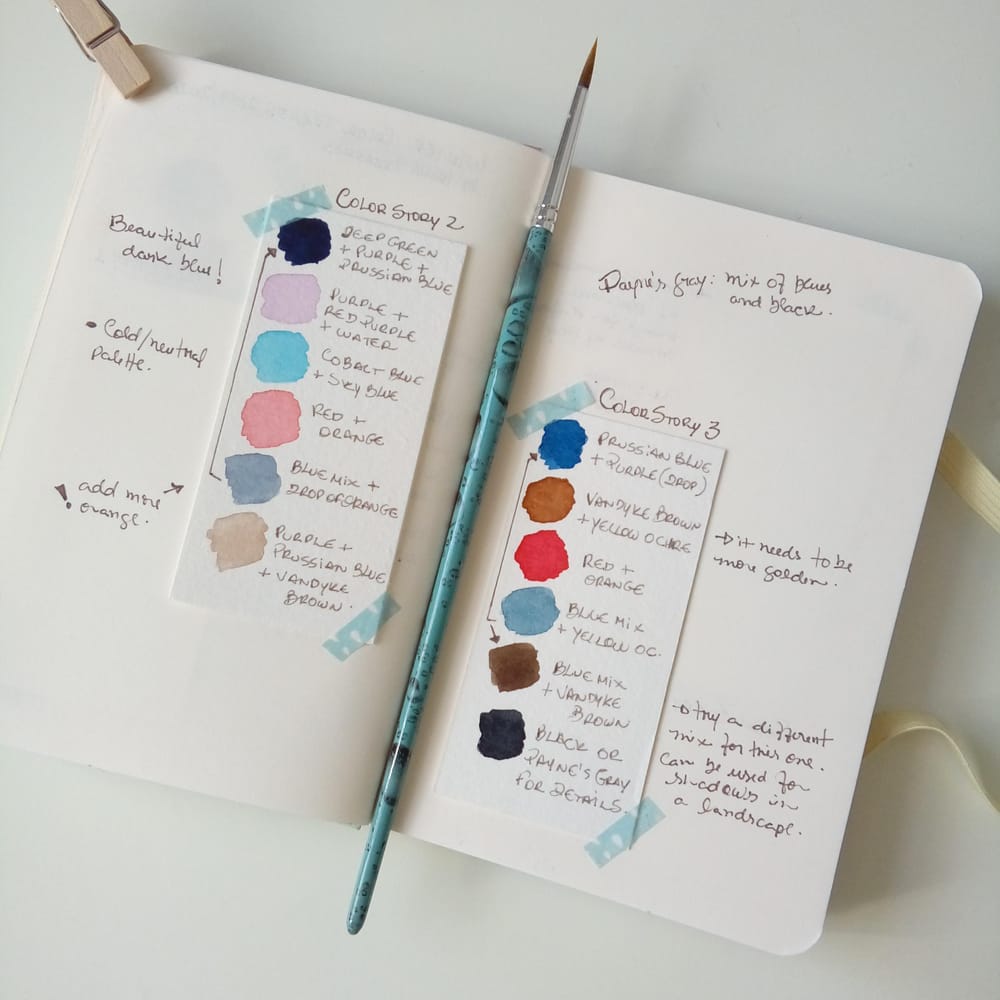 Color Story 2
Beautiful
dark blue!
Deep Green
+ Purple +
Prussian Blue
Purple +
Red Purple
+ Water
• Cold/neutral
palette.
Cobalt Blue
+ Sky Blue
Red +
Orange
Blue Mix +
Drop of Orange
! add more
orange.
Purple +
Prussian Blue
+ Vandyke
Brown.
Payne's Gray: mix of blues
and black.
Color Story 3
Prussian Blue
+ Purple (Drop)
Vandyke Brown
+ Yellow Ochre
it needs to be
more golden.
Red +
Orange
Blue Mix
+ Yellow Oc.
Blue Mix
+ Vandyke
Brown
Black or
Payne's Gray
for details.
try a different
mix for this one.
Can be used for
shadows in
a landscape.